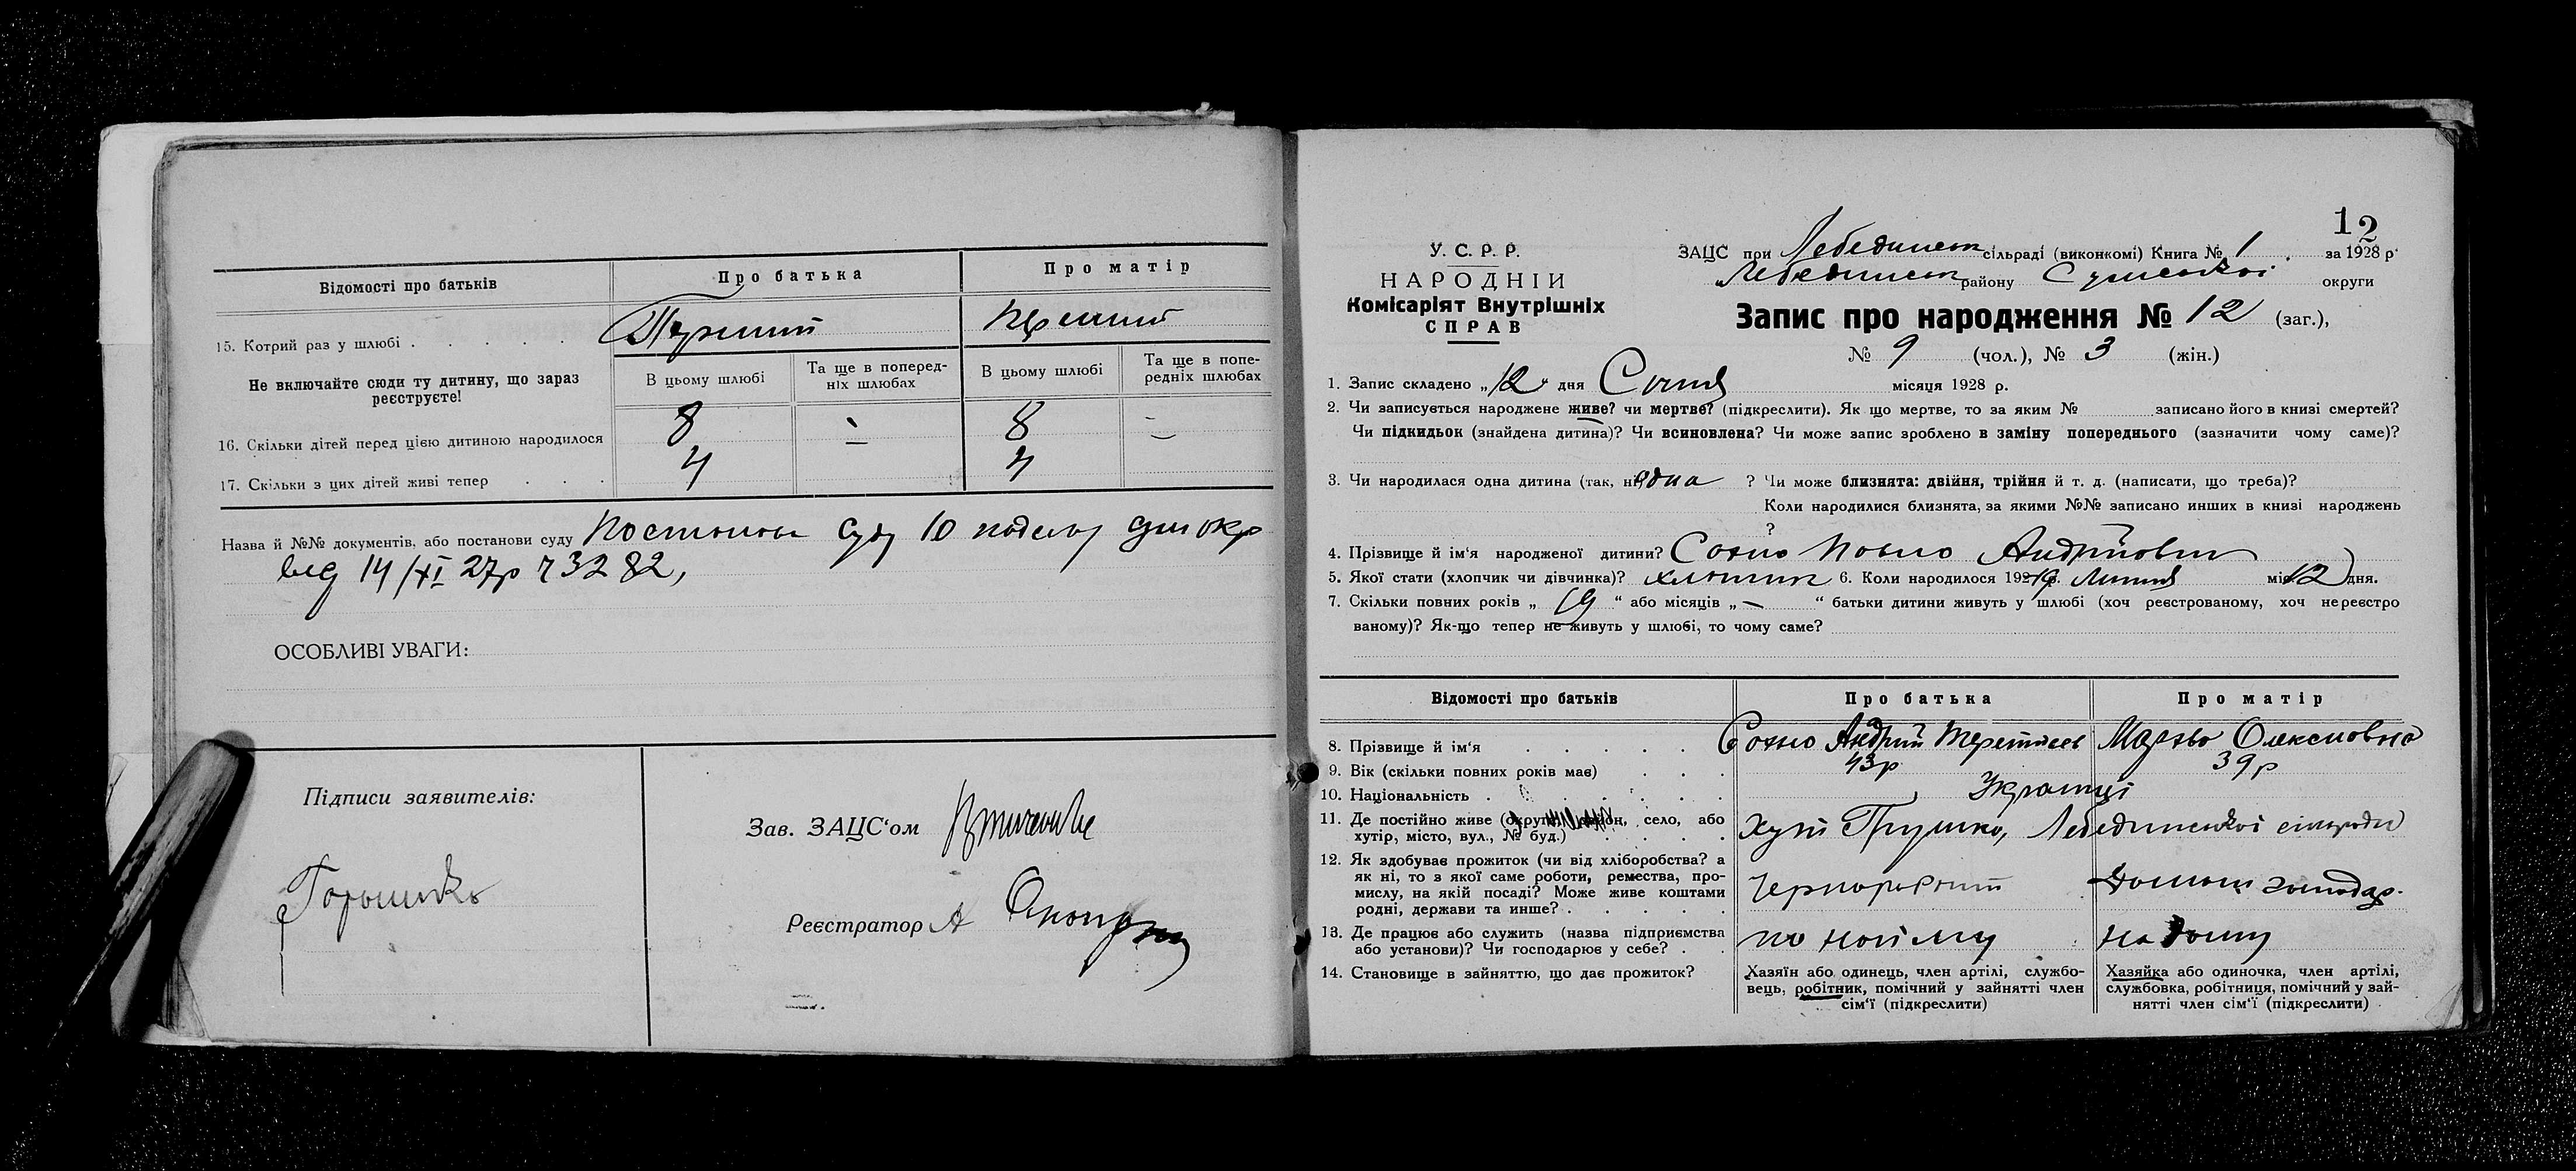 Відомості про батьків
Про батька
Про матір
15. Котрий раз у шлюбі . . . . .
Перший
Перший
Не включайте сюди ту дитину, що зараз
реєструєте!
В цьому шлюбі
Та ще в поперед-
ніх шлюбах
В цьому шлюбі
Та ще в попе-
редніх шлюбах
16. Скільки дітей перед цією дитиною народилося
8
8
—
17. Скільки з цих дітей живі тепер . . .
4
4
Назва й №№ документів, або постанови суду Постанова суду 10
від 14/XI 27р 73282,
ОСОБЛИВІ УВАГИ:
Підписи заявителів:
Зав. ЗАЦС‘ом
Реєстратор А
12
У. С. Р. Р.
НАРОДНІЙ
Комісаріят Внутрішніх
СПРАВ
ЗАЦС при Лебединськ сільраді (виконкомі) Книга № 1 за 1928 р.
Лебединськ району Сумської округи
Запис про народження № 12 (заг.),
№ 9 (чол.), № 3 (жін.)
1. Запис складено „12“ дня Січня місяця 1928 р.
2. Чи записується народжене живе? чи мертве? (підкреслити). Як що мертве, то за яким № записано його в книзі смертей?
Чи підкидьок (знайдена дитина)? Чи всиновлена? Чи може запис зроблено в заміну попереднього (зазначити чому саме)?
3. Чи народилася одна дитина (так, ні) одна ? Чи може близнята: двійня, трійня й т. д. (написати, що треба)?
Коли народилися близнята, за якими №№ записано инших в книзі народжень
?
4. Прізвище й ім‘я народженої дитини? Сохно Павло Андрійович
5. Якої стати (хлопчик чи дівчинка)? хлопчик 6. Коли народилося 19 р. Липня міс. 12 дня.
7. Скільки повних років „19“ або місяців „—“ батьки дитини живуть у шлюбі (хоч реєстрованому, хоч нереєстро
ваному)? Як-що тепер не живуть у шлюбі, то чому саме?
Відомості про батьків
Про батька
Про матір
8. Прізвище й ім‘я . . . . .
Сохно Андрій
Олексіовна
9. Вік (скільки повних років має) . . .
43р
39р
10. Національність . . . . . .
Українці
11. Де постійно живе (округа, район, село, або
хутір, місто, вул., № буд.) . . . .
Хут Грушко, Лебединської сільради
12. Як здобуває прожиток (чи від хліборобства? а
як ні, то з якої саме роботи, ремества, про-
мислу, на якій посаді? Може живе коштами
родні, держави та инше? . . . . .
чорноробочий
Домаш господар.
13. Де працює або служить (назва підприємства
або установи)? Чи господарює у себе? . .
по найму
на дому
14. Становище в зайняттю, що дає прожиток?
Хазяїн або одинець, член артілі, службо-
вець, робітник, помічний у зайнятті член
сім‘ї (підкреслити)
Хазяйка або одиночка, член артілі,
службовка, робітниця, помічний у зай-
нятті член сім‘ї (підкреслити)